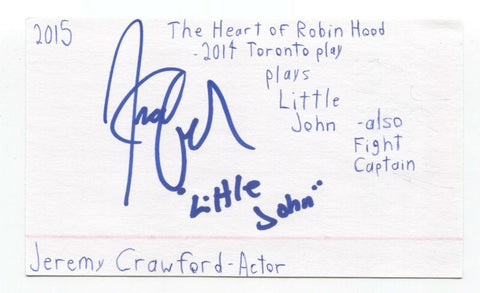 2015
The Heart of Robin Hood
-2014 Toronto play
plays
Little
John -also
Fight
Captain
"Little
John"
Jeremy Crawford-Actor